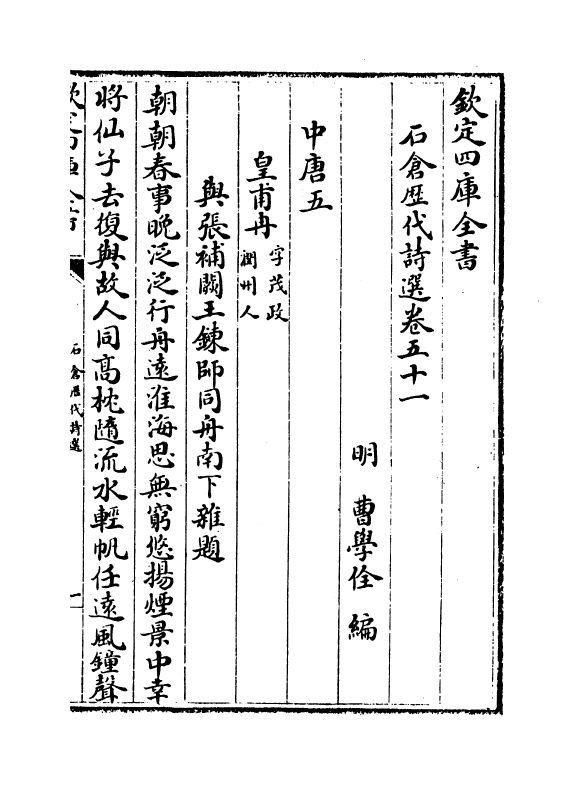 欽定四庫全書
石倉歴代詩選卷五十一
明　曹學佺　編
中唐五
皇甫冉
字茂政
潤州人
與張補闕王錬師同舟南下雜題
朝朝春事晩泛泛行舟遠淮海思無窮悠揚煙景中幸
將仙子去復與故人同高枕隨流水輕帆任遠風鐘聲
石倉歴代詩選
一